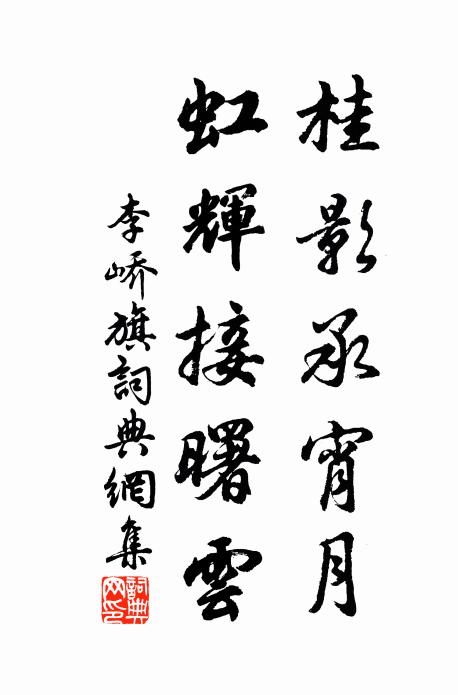 桂影承宵月
虹輝接曙雲
李嶠旗詞典網集
詞典网印